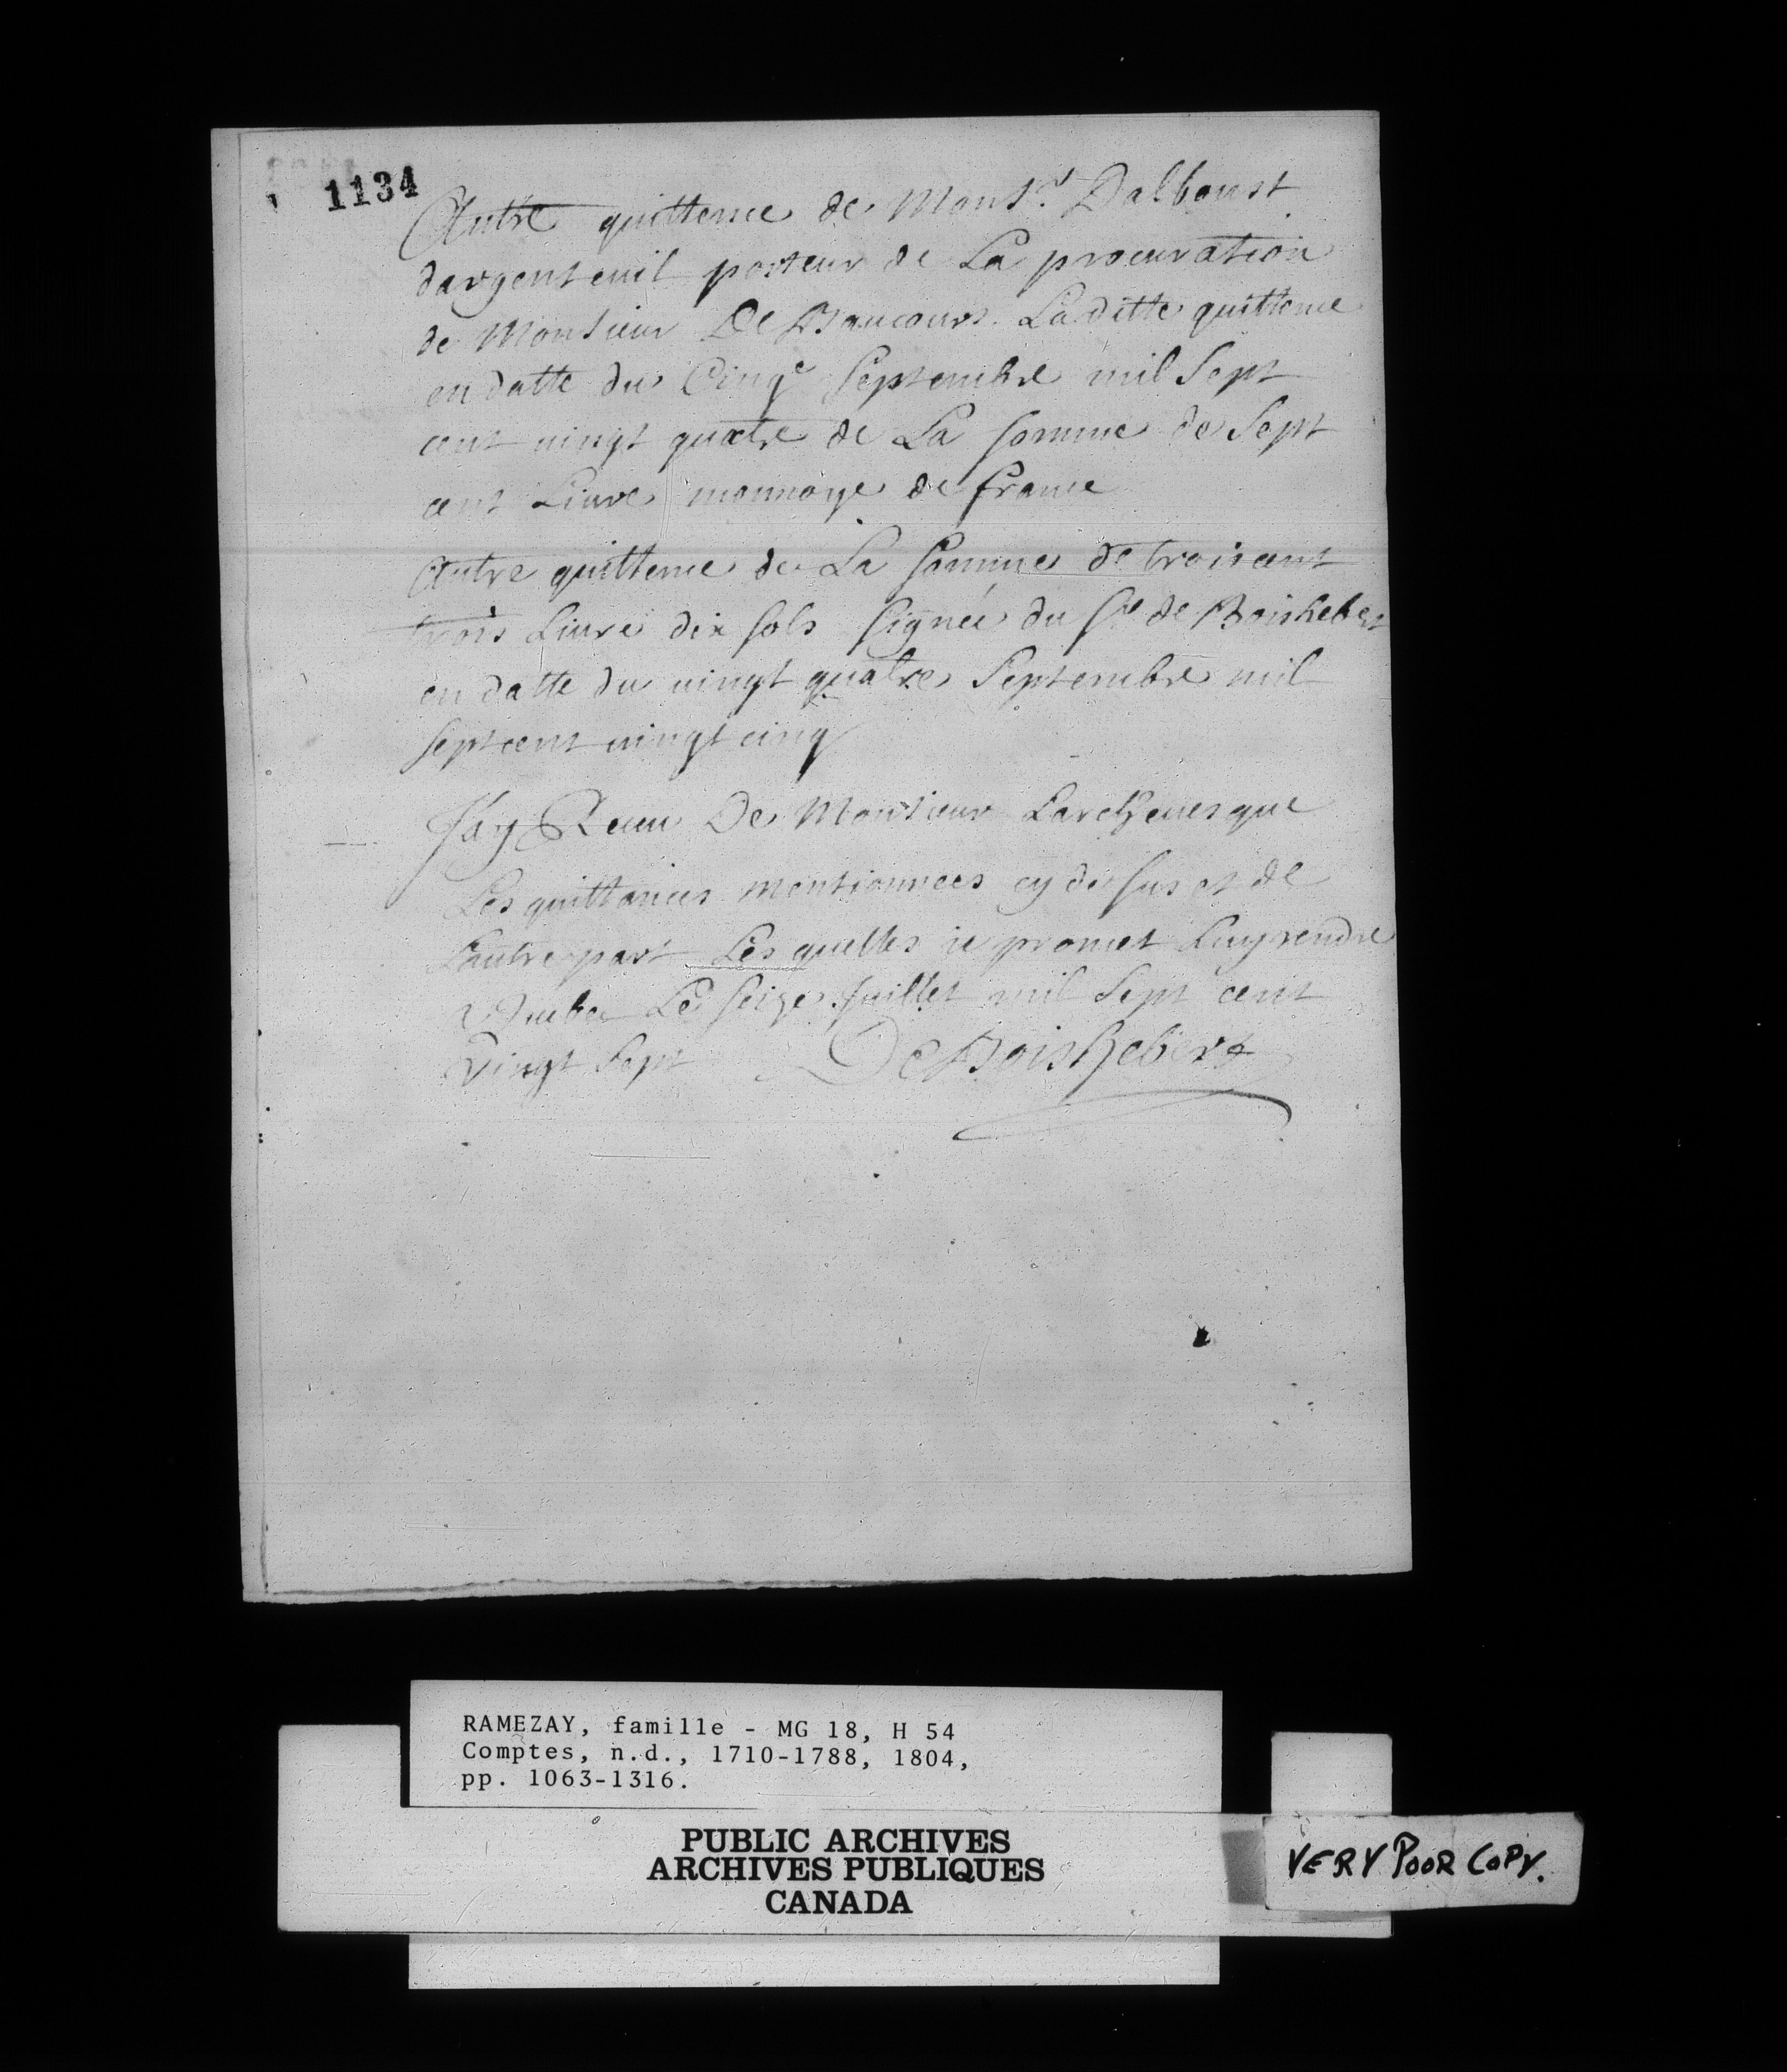 1134
Autre quittence de Mons.r Dalboust
dargenteuil porteur de La procuration
de Monsieur De Baucours. La ditte quittence
en datte du Cinq.e Septembre mil Sept
cent vingt quatre de La somme de Sept
cent Livre monnoye de france
Autre quittence de La Somme de trois cent
trois Livre dix sols signée du Sr de Boishebert
en datte du vingt quatre Septembre mil
sept cent vingt cinq
Jay Receu De Monsieur Larchevesque
Les quittances mentionnees cy dessus et de
Lautre part Les quelles ie promet Luy rendre
Le seize Juillet mil Sept cent
Vingt Sept DeBoishebert
RAMEZAY, famille - MG 18, H 54
Comptes, n.d., 1710-1788, 1804,
pp. 1063-1316.
PUBLIC ARCHIVES
ARCHIVES PUBLIQUES
CANADA
VERY POOR COPY.